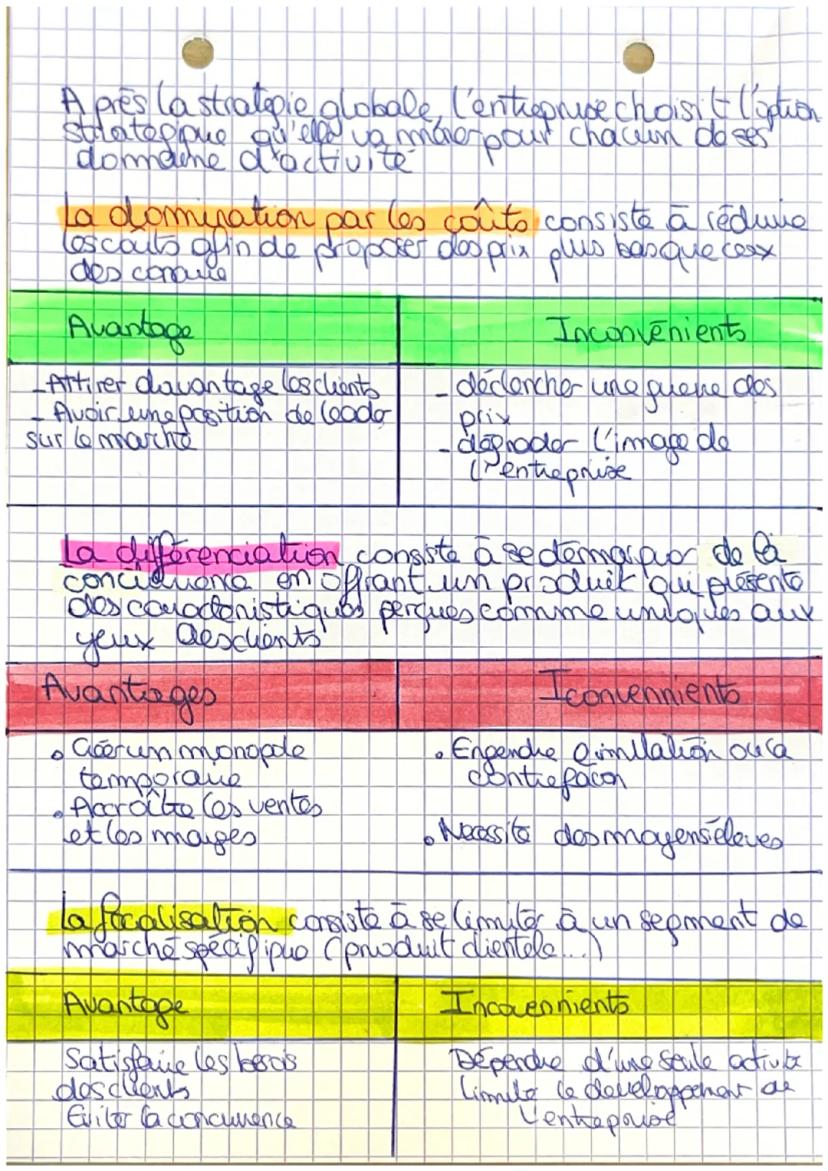 Après la stratégie globale, l'entreprise choisit l'option
stratégique qu'elle va mener pour chacun de ses
domaine d'activité
La domination par les coûts consiste à réduire
les coûts afin de proposer des prix plus bas que ceux
des
Avantage
Inconvénients
- Attirer davantage les clients
- Avoir une position de leader
sur le marché
- déclencher une guerre des
prix
- dégrader l'image de
l'entreprise
La différenciation consiste à se démarquer de la
concurrence en offrant un produit qui présente
des caractéristiques perçues comme uniques aux
yeux des clients
Avantages
Iconvennients
• Créer un monopole
temporaire
• Accroître les ventes
et les marges
• Engendre l'imitation ou la
contrefaçon
• Nécessite des moyens élevés
La focalisation consiste à se limiter à un segment de
marché spécifique (produit clientele...)
Avantage
Incovennients
Satisfaire les besois
des clients
Eviter la concurrence
Dépendre d'une seule activité
Limite le developpement de
l'entreprise